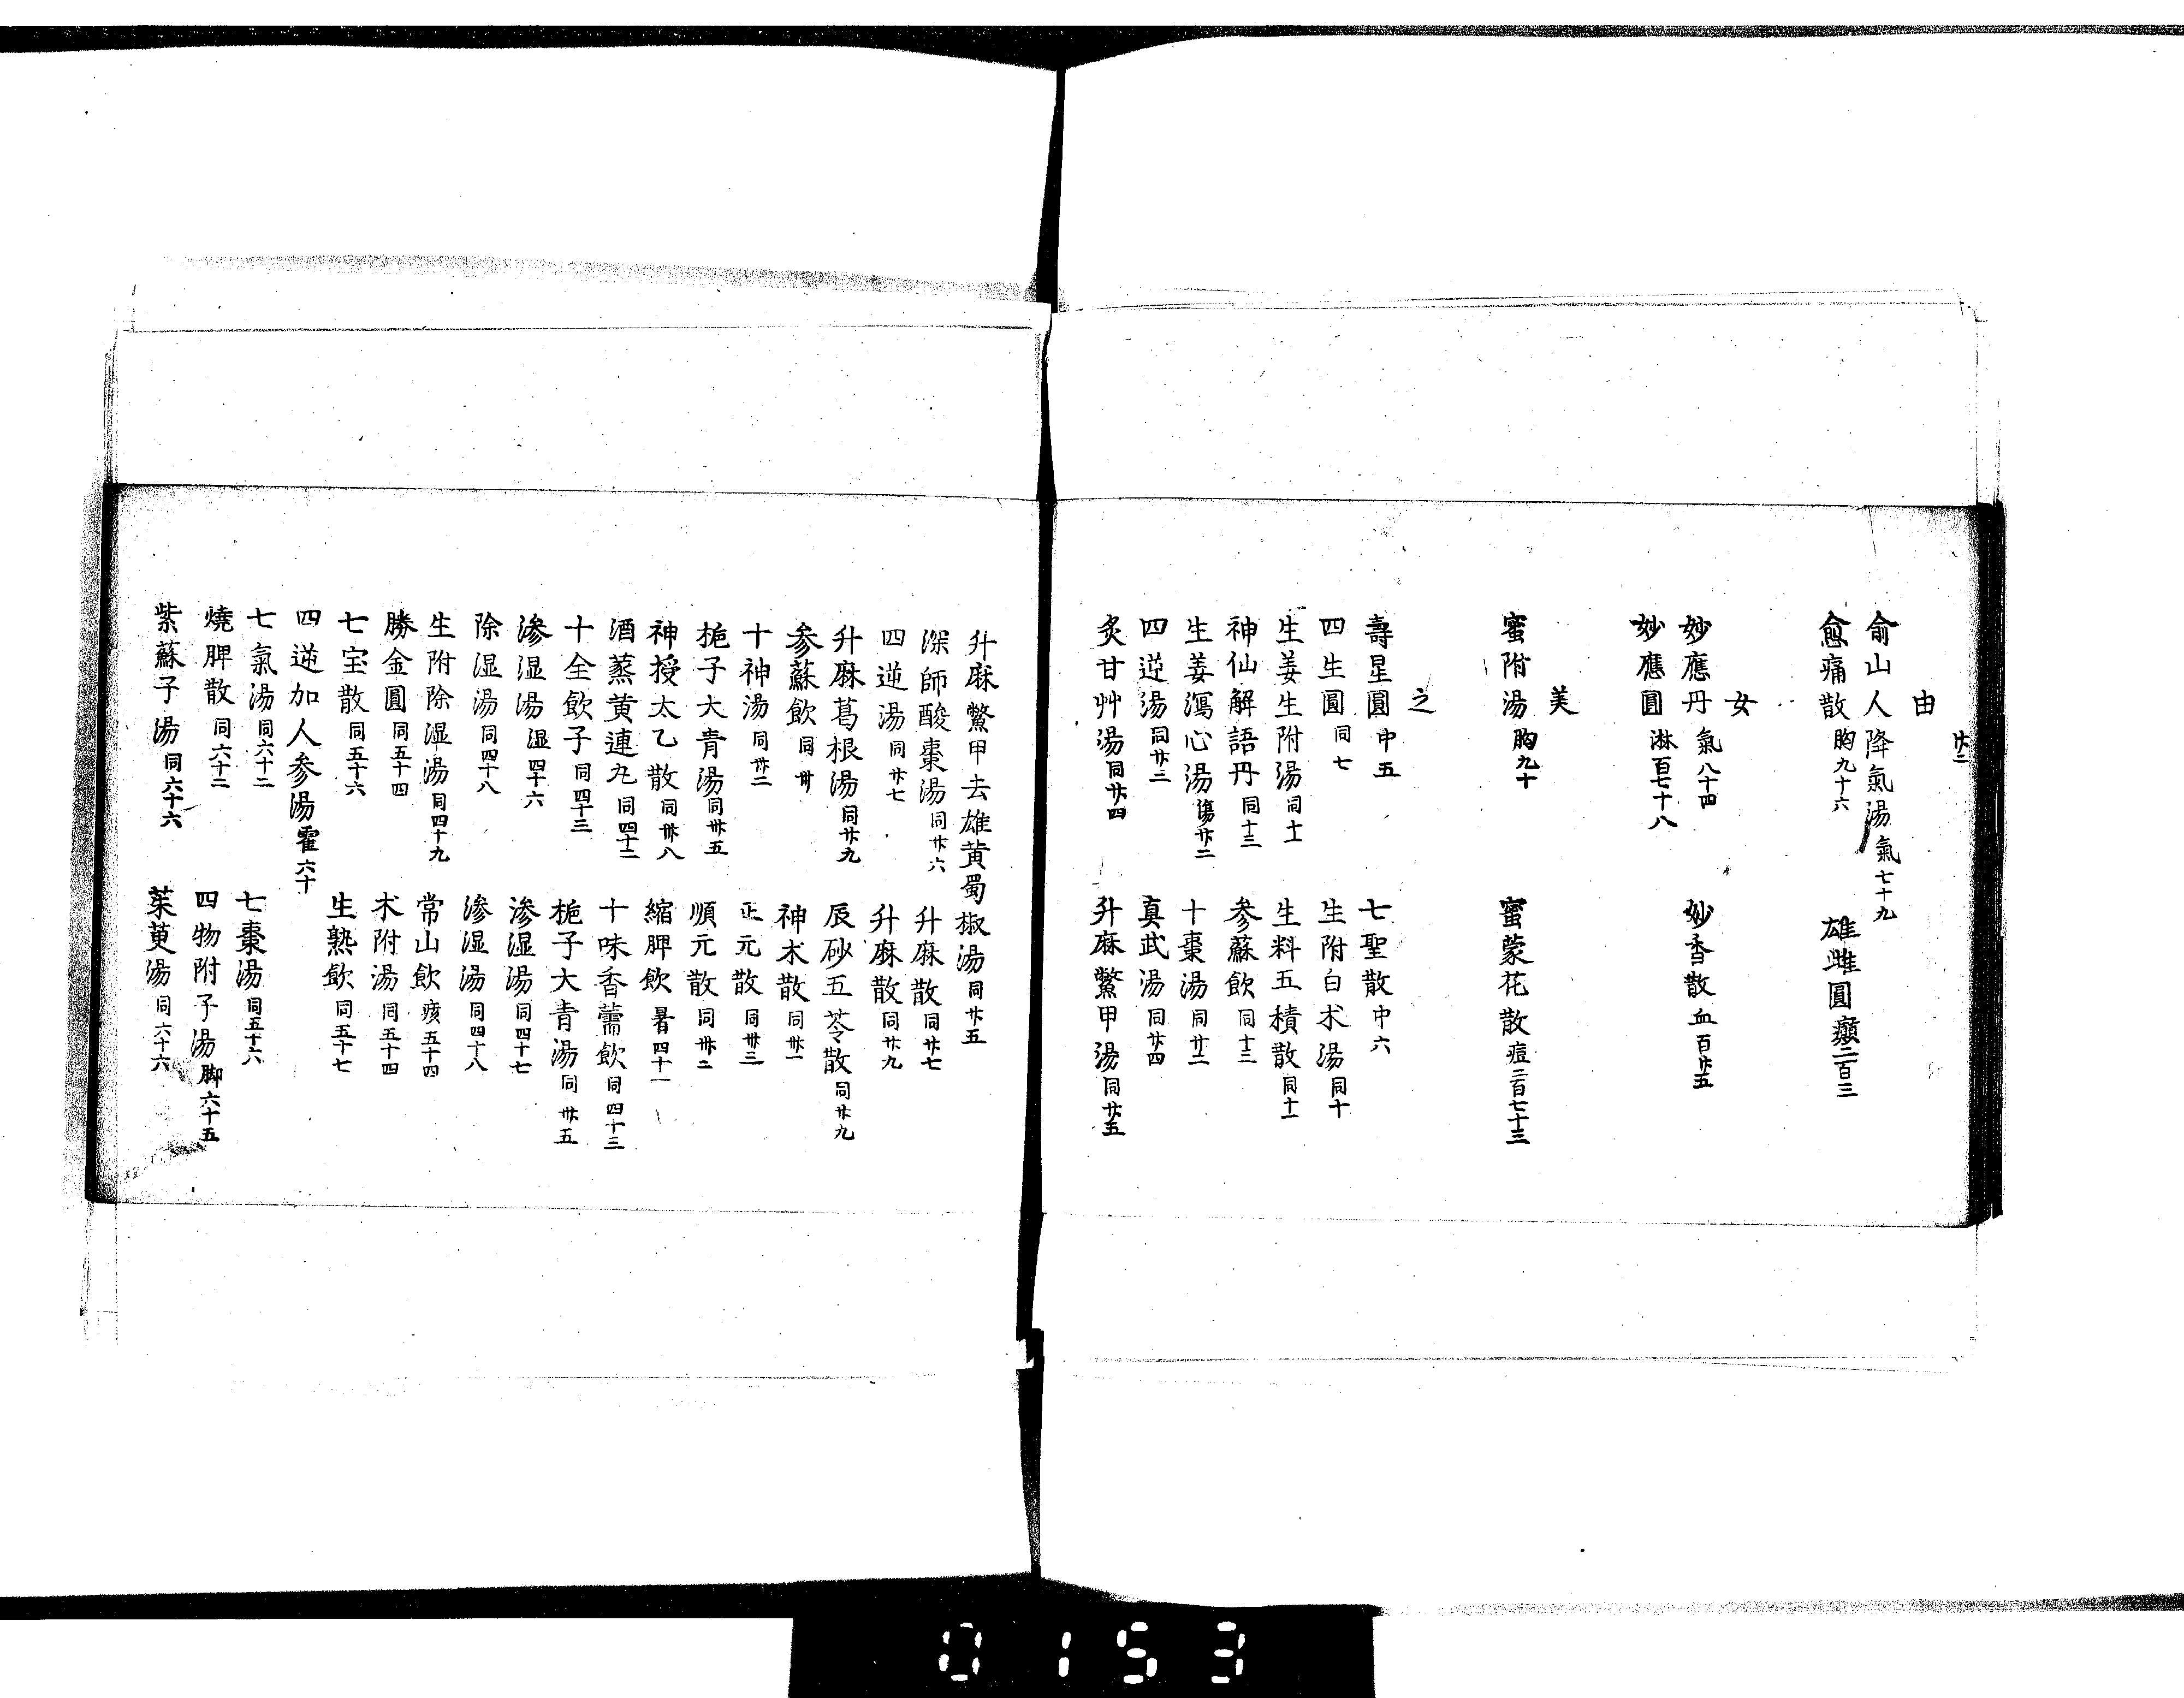 廿二
由
俞山人降氣湯氣七十九
愈痛散胸九十六　雄雌圓癲二百三
女
妙應丹氣八十四　妙香散血百廿五
妙應圓淋百七十八
美
蜜附湯胸九十　蜜蒙花散痘二百七十三
之
壽星圓中五　七聖散中六
四生圓同七　生附白朮湯同十
生姜生附湯同十一　生料五積散同十一
神仙解語丹同十三　参蘇飲同十三
生姜瀉心湯傷廿二　十棗湯同廿二
四逆湯同廿三　真武湯同廿四
炙甘艸湯同廿四　升麻鱉甲湯同廿五
升麻鱉甲去雄黄蜀椒湯同廿五
深師酸棗湯同廿六　升麻散同廿七
四逆湯同廿七　升麻散同廿九
升麻葛根湯同廿九　辰砂五苓散同廿九
参蘇飲同卅　神朮散同卅一
十神湯同卅二　正元散同卅三
梔子大青湯同卅五　順元散同卅二
神授太乙散同卅八　縮脾飲暑四十一
酒蒸黄連丸同四十二　十味香薷飲同四十三
十全飲子同四十三　梔子大青湯同卅五
滲湿湯湿四十六　滲湿湯同四十七
除湿湯同四十八　滲湿湯同四十八
生附除湿湯同四十九　常山飲痎五十四
勝金圓同五十四　朮附湯同五十四
七宝散同五十六　生熟飲同五十七
四逆加人参湯霍六十
七氣湯同六十二　七棗湯同五十六
燒脾散同六十二　四物附子湯脚六十五
紫蘇子湯同六十六　茱萸湯同六十六
0153